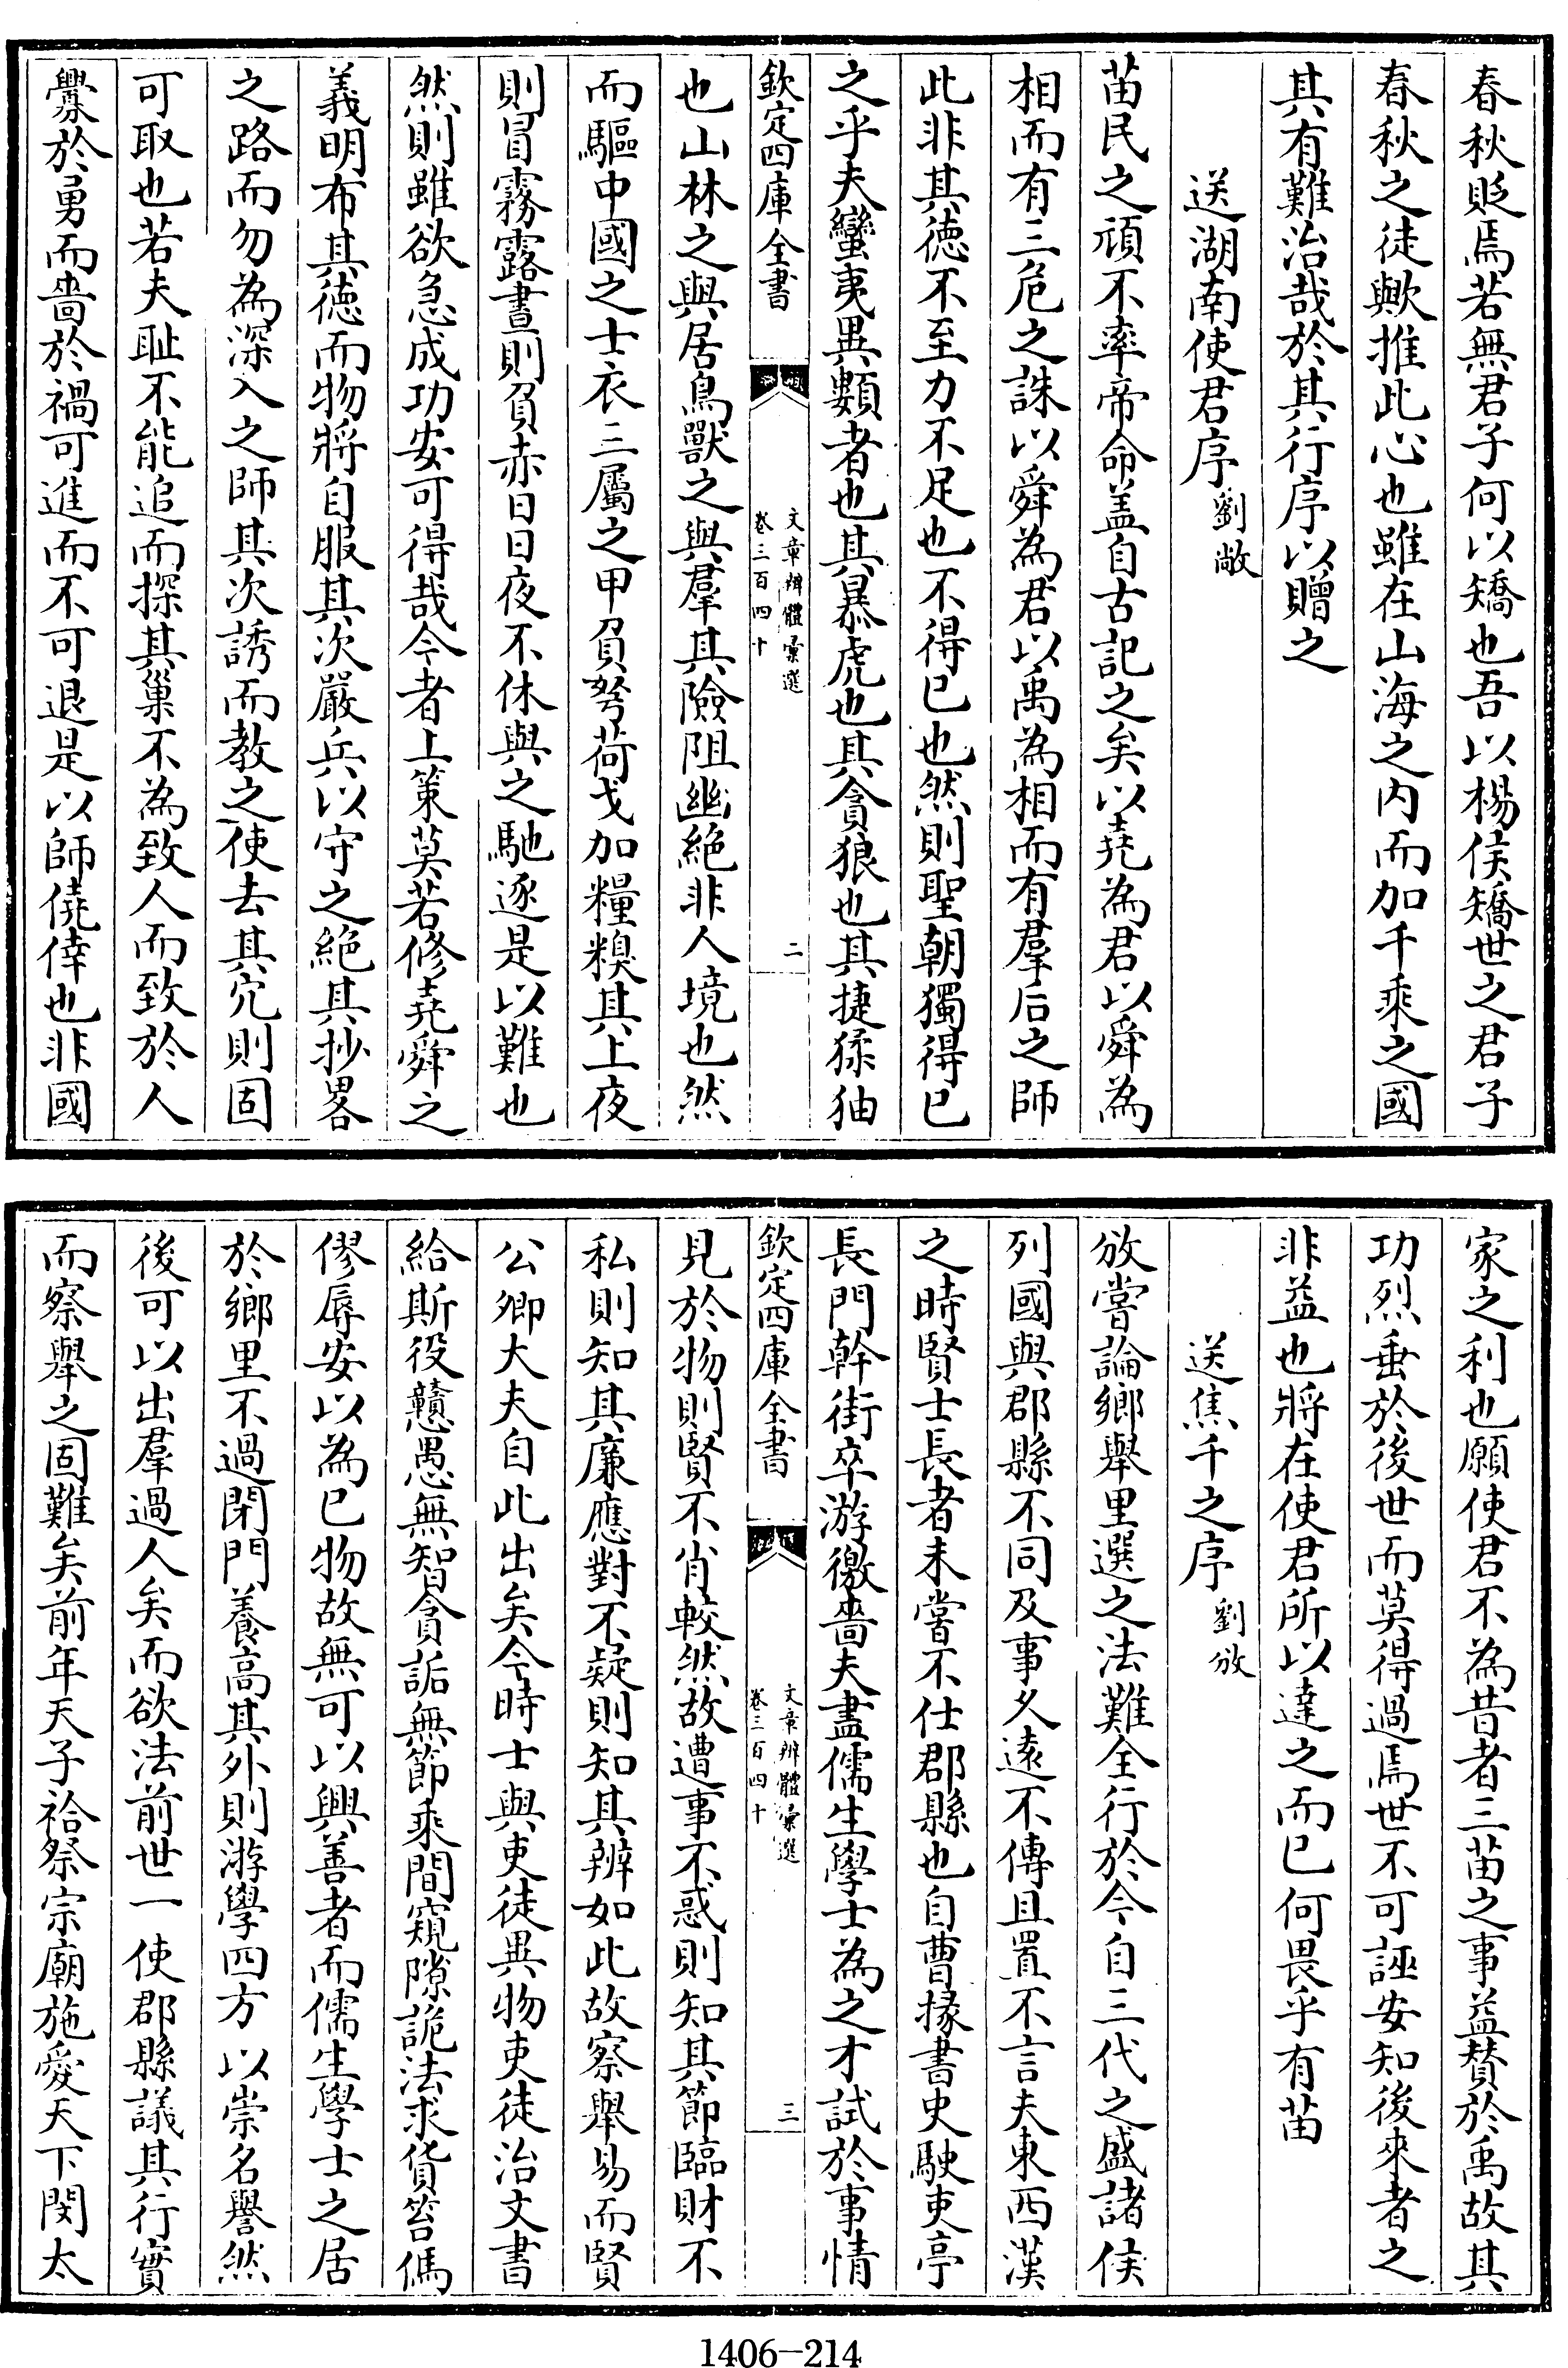 春秋貶焉若無君子何以矯也吾以楊侯矯世之君子
春秋之徒歟推此心也雖在山海之内而加千乘之國
其有難治哉於其行序以贈之
送湖南使君序劉敞
苗民之頑不率帝命盖自古記之矣以堯為君以舜為
相而有三危之誅以舜為君以禹為相而有羣后之師
此非其徳不至力不足也不得已也然則聖朝獨得已
之乎夫蠻夷異類者也其暴虎也其貪狼也其捷猱狖
欽定四庫全書
文章辨體彙選
卷三百四十
二
也山林之與居鳥獸之與羣其險阻幽絶非人境也然
而驅中國之士衣三屬之甲負弩荷戈加糧糗其上夜
則冒霧露晝則負赤日日夜不休與之馳逐是以難也
然則雖欲急成功安可得哉今者上策莫若修堯舜之
義明布其徳而物將自服其次嚴兵以守之絶其抄畧
之路而勿為深入之師其次誘而教之使去其穴則固
可取也若夫耻不能追而探其巢不為致人而致於人
釁於勇而嗇於禍可進而不可退是以師僥倖也非國
家之利也願使君不為昔者三苗之事益贊於禹故其
功烈垂於後世而莫得過焉世不可誣安知後來者之
非益也將在使君所以達之而已何畏乎有苗
送焦千之序劉攽
攽嘗論鄉舉里選之法難全行於今自三代之盛諸侯
列國與郡縣不同及事久逺不傳且置不言夫東西漢
之時賢士長者未嘗不仕郡縣也自曹掾書史馭吏亭
長門幹街卒游徼嗇夫盡儒生學士為之才試於事情
欽定四庫全書
文章辨體彙選
卷三百四十
三
見於物則賢不肖較然故遭事不惑則知其節臨財不
私則知其廉應對不疑則知其辨如此故察舉易而賢
公卿大夫自此出矣今時士與吏徒異物吏徒治文書
給斯役戅愚無智貪詬無節乘間窺隙詭法求貨笞傌
僇辱安以為已物故無可以興善者而儒生學士之居
於鄉里不過閉門養高其外則游學四方以崇名譽然
後可以出羣過人矣而欲法前世一使郡縣議其行實
而察舉之固難矣前年天子祫祭宗廟施愛天下閔太
1406-214